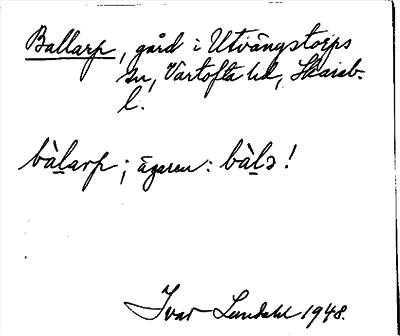 Ballarp, gård i Utvängstorps
sn, Vartofta hd, Skarab.
l.
bàlarp; ägaren: bàlə!
Ivar Lundahl 1948.